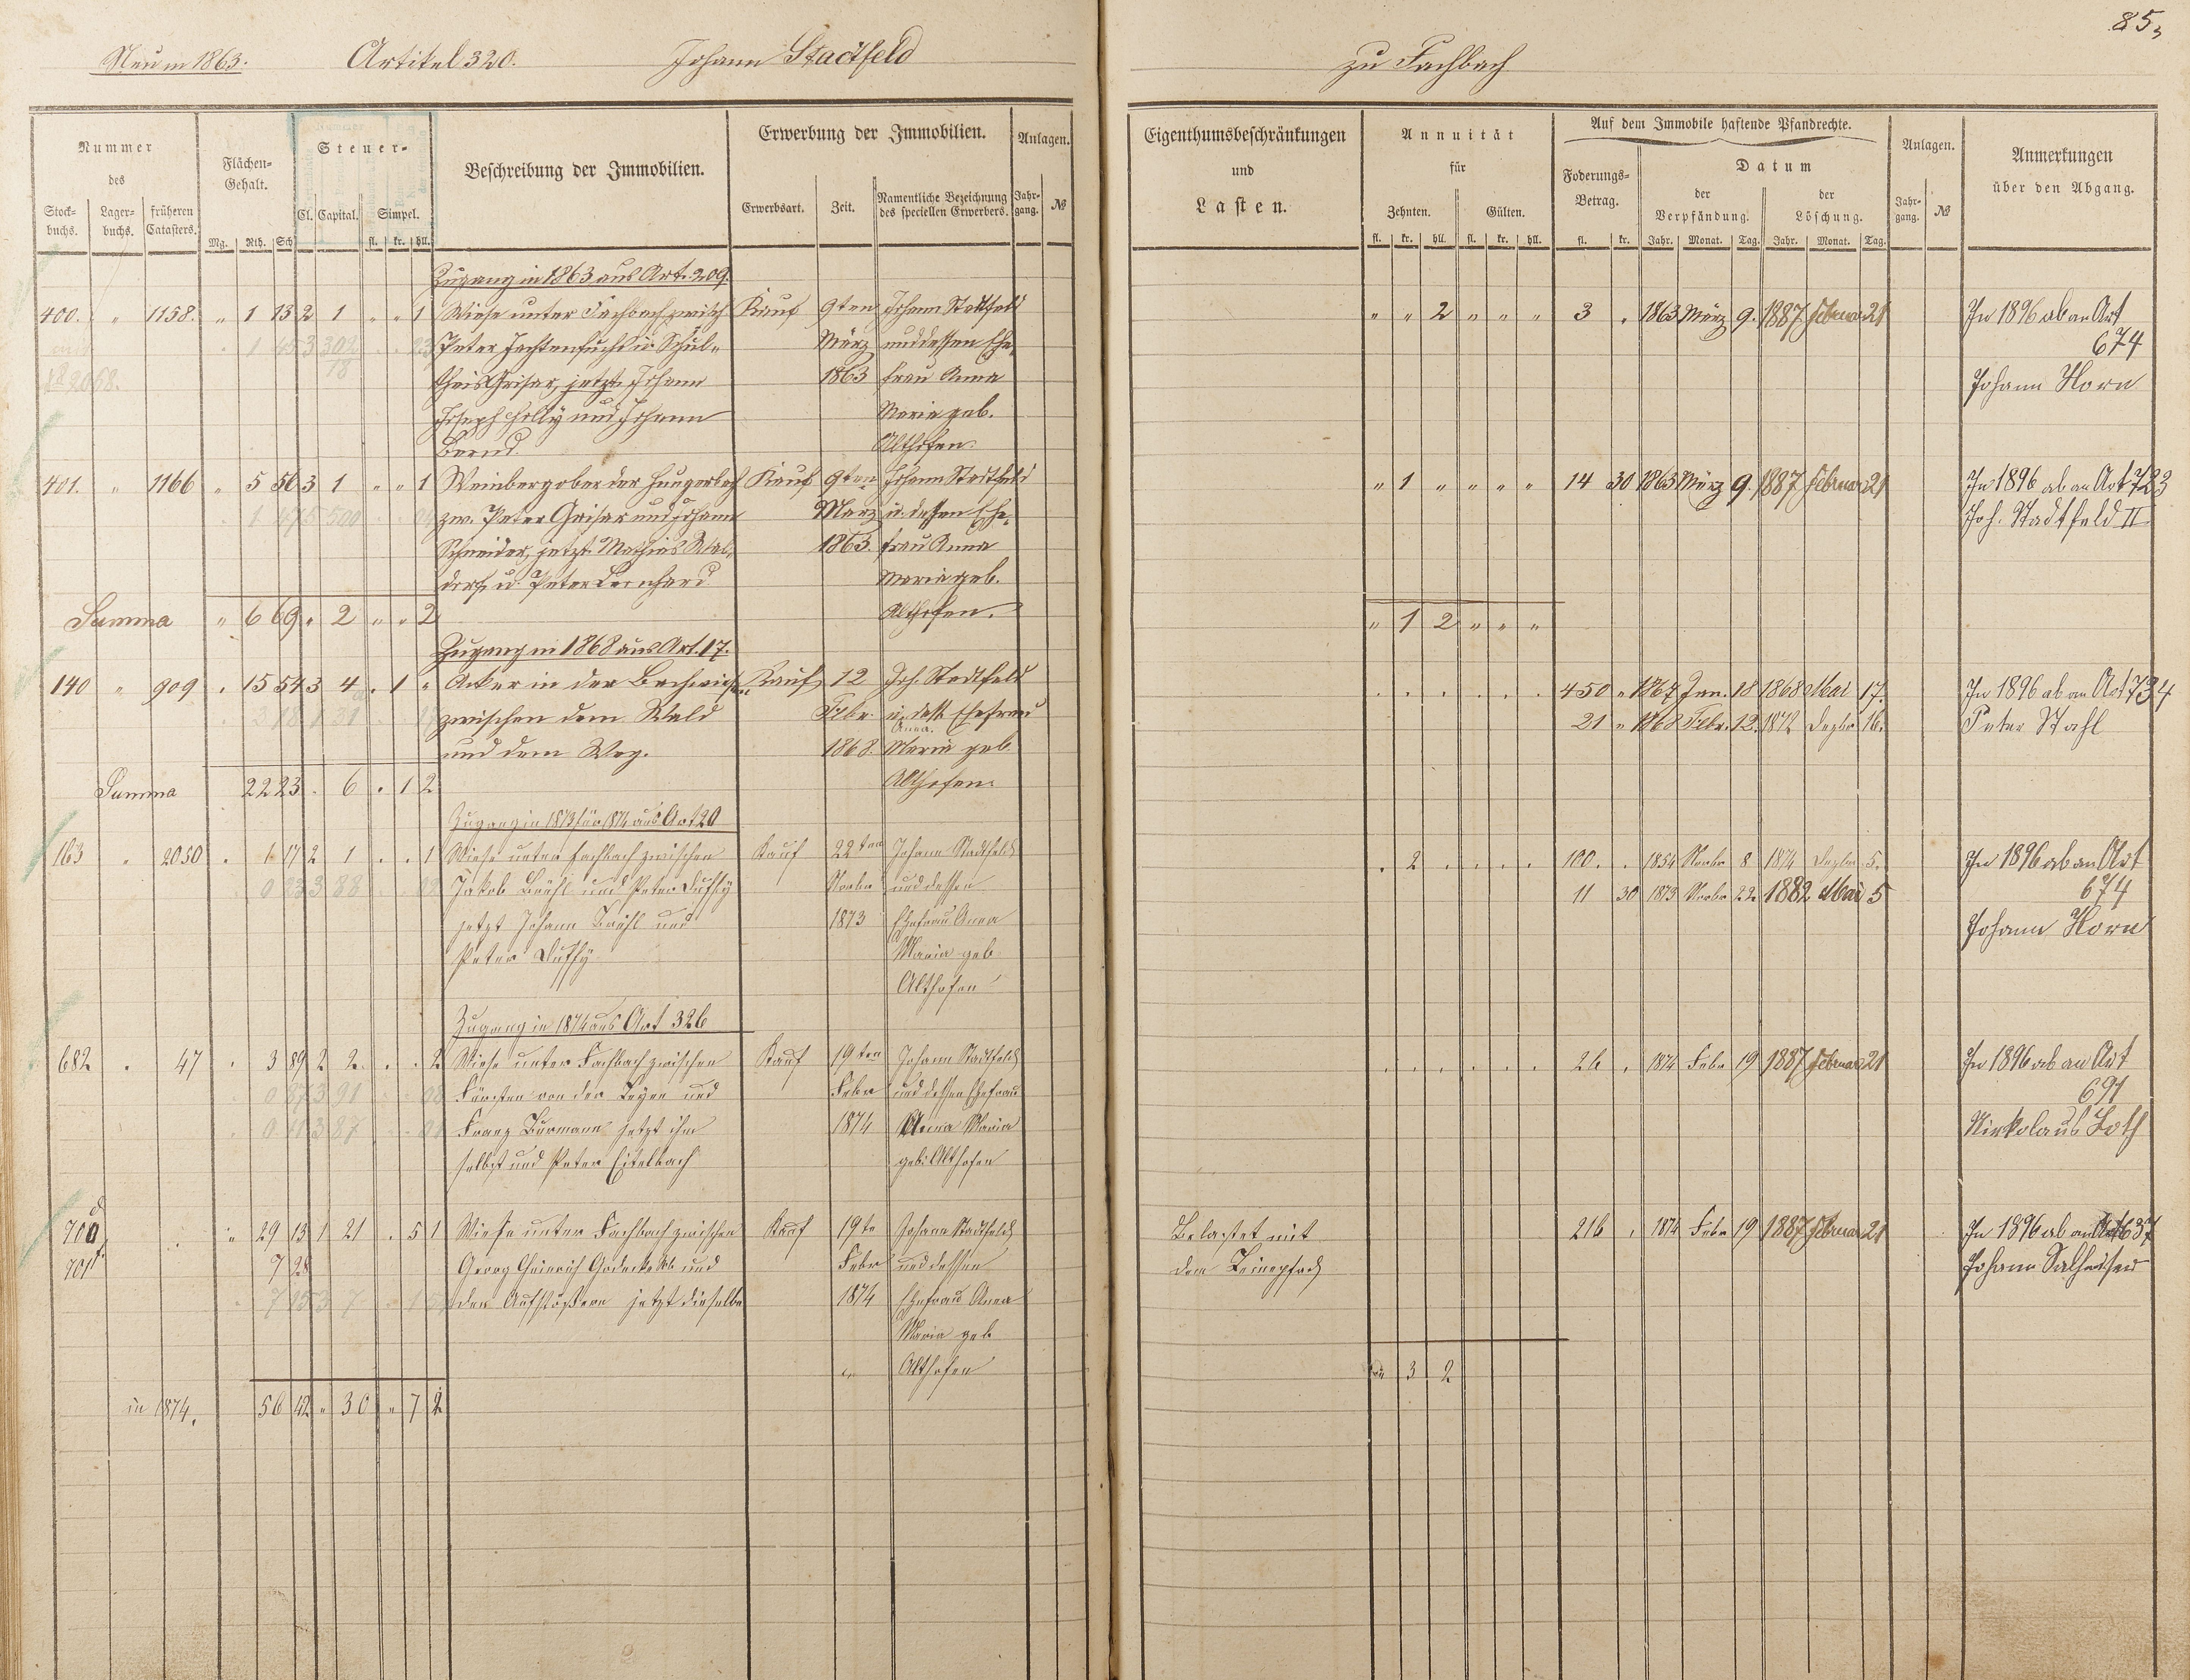 85,
Neu in 1863. Artikel 320. Johann Stadtfeld zu Fachbach
Nummer des
Stock-buchs. Lager-buchs. früheren Catasters.
Flächen-Gehalt.
Mg. Rth. Sch
Steuer-
Cl. Capital. Simpel.
fl. kr. hll.
Beschreibung der Immobilien.
Erwerbung der Immobilien.
Erwerbsart. Zeit. Namentliche Bezeichnung des speciellen Erwerbers.
Anlagen.
Jahr-gang. №
Eigenthumsbeschränkungen
und
Lasten.
Annuität
für
Zehnten. Gülten.
fl. kr. hll. fl. kr. hll.
Auf dem Immobile haftende Pfandrechte.
Foderungs-Betrag.
fl. kr.
Datum
der Verpfändung. der Löschung.
Jahr. Monat. Tag. Jahr. Monat. Tag.
Anlagen.
Jahr-gang. №
Anmerkungen
über den Abgang.
Zugang in 1863 aus Art. 209.
400. " 1158. " 1 13 2 1 " " 1 Wiese unter Fachbach zwisch Kauf 9ten Johann Stadtfeld " " 2 " " " 3 . 1863 März 9. 1887 Februar 21 In 1896 ab an Art
Peter März und dessen Ehe- 674
theis Griser, jetzt Johann 1863 frau Anna Johann Horn
Joseph Holly und Johann Maria geb.
Bernd. Althofen.
401. " 1166 " 5 56 3 1 " " 1 Weinberg ober der Kauf 9ten Johann Stadtfeld " 1 " " " " 14 30 1863 März 9. 1887 Februar 21 In 1896 ab an Art 723
zw. Peter Griser und Johann März u. dessen Ehe- Joh. Stadtfeld II
Schneider, jetzt Mathias Wal- 1863. frau Anna
dorf u. Peter Leonhard Maria geb.
Summa " 6 69 " 2 " " 2 Althofen. " 1 2 " " "
Zugang in 1868 aus Art. 17.
140 " 909 . 15 54 3 4 . 1 " Acker in der Kauf 12 Joh. Stadtfeld 450 " 1867 Jan. 18 1868 Mai 17. In 1896 ab an Art 734
zwischen dem Wald Febr. u. dess. Ehefrau 21 " 1868 Febr. 12. 1872 Dezbr 16. Peter Stahl
und dem Weg. 1868. Anna Maria geb.
Summa 22 23 . 6 . 1 2 Althofen
Zugang in 1873 für 1874 aus Art 20
163 " 2050 . 1 17 2 1 . . 1 Wiese unter Fachbach zwischen Kauf 22ten Johann Stadtfeld . 2 . . . . 100. . 1854 Novbr 8 1874 Dezbr 5. In 1896 ab an Art
Jakob Brühl und Peter Duffy Novbr und dessen 11 30 1873 Novbr 22 1882 Mai 5 674
jetzt Johann Brühl und 1873 Ehefrau Anna Johann Horn
Peter Duffy Maria geb
Althofen
Zugang in 1874 aus Art 326
682 . 47 . 3 89 2 2 . . 2 Wiese unter Fachbach zwischen Kauf 19ten Johann Stadtfeld 26 . 1874 Febr 19 1887 Februar 21 In 1896 ab an Art
Fürsten von der Leyen und Febr und dessen Ehefrau 691
Franz Burmann jetzt ihm 1874 Anna Maria Nikolaus Loth
selbst und Peter Eitelbach geb: Althofen
700 d . " 29 13 1 21 . 5 1 Wiese unter Fachbach zwischen Kauf 19te Johann Stadtfeld Belastet mit 216 . 1874 Febr 19 1887 Februar 21 In 1896 ab an Art 637
701 7 28 Georg Heinrich und Febr und dessen dem Leinepfad Johann
den Aufstößern jetzt dieselbe 1874 Ehefrau Anna
Maria geb
Althofen 3 2
in 1874. 56 42 " 30 " 7 2